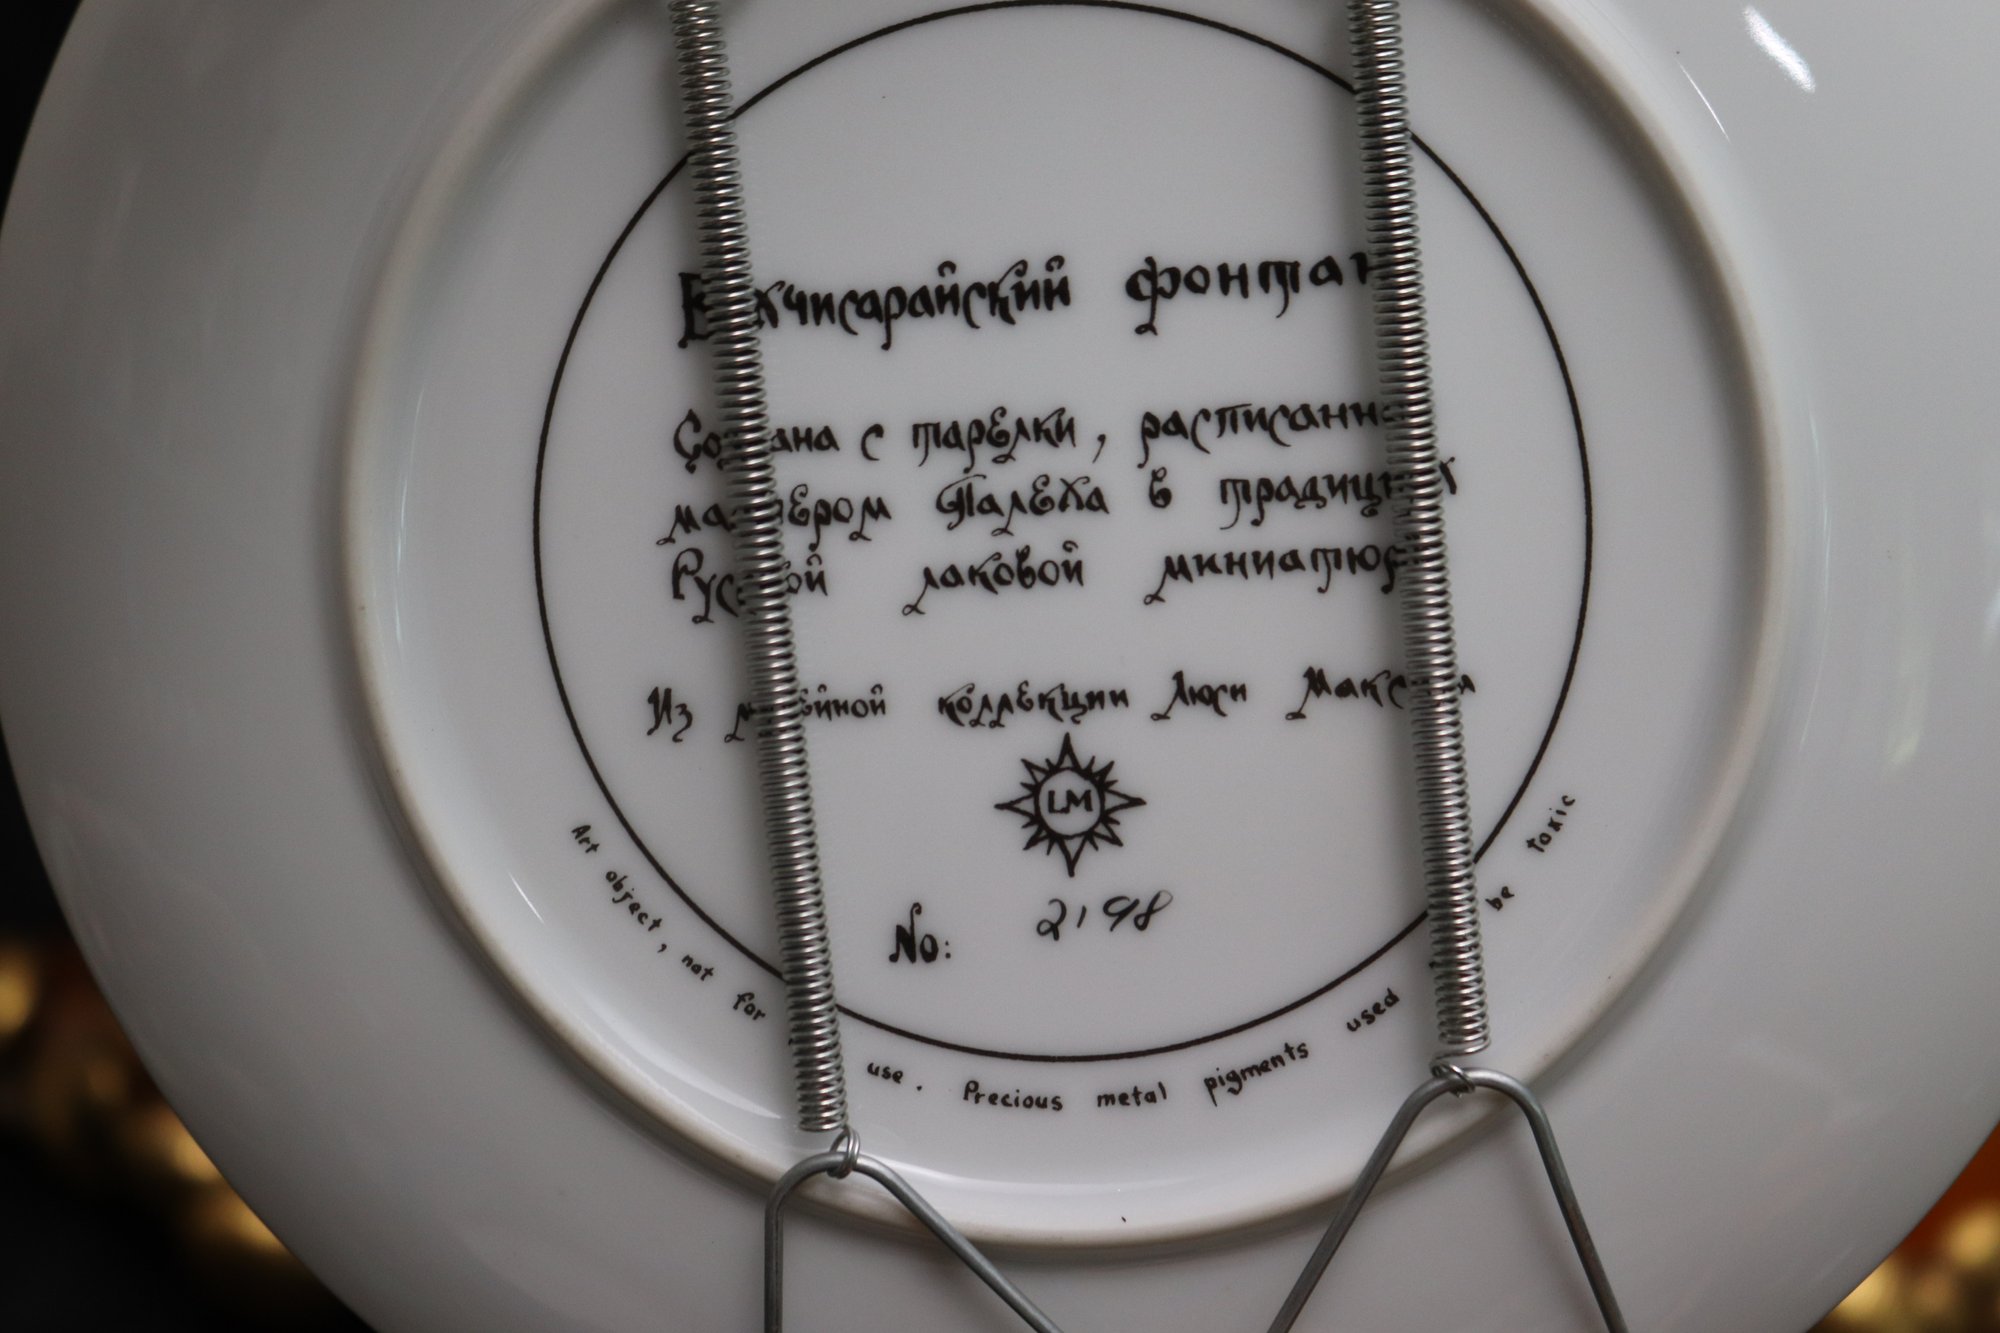 Бахчисарайский фонтан
Создана с тарелки, расписанной
мастером Палеха в традициях
Русской лаковой миниатюры
Из музейной коллекции Люси Максим
LM
No: 2198
Art object, not for use. Precious metal pigments used be toxic